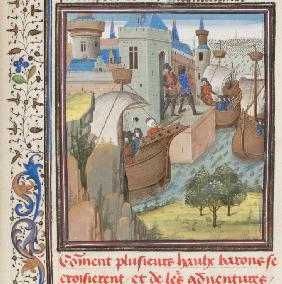 Co͂ment plusieurs haulx barons se
croisierent et de les adventures